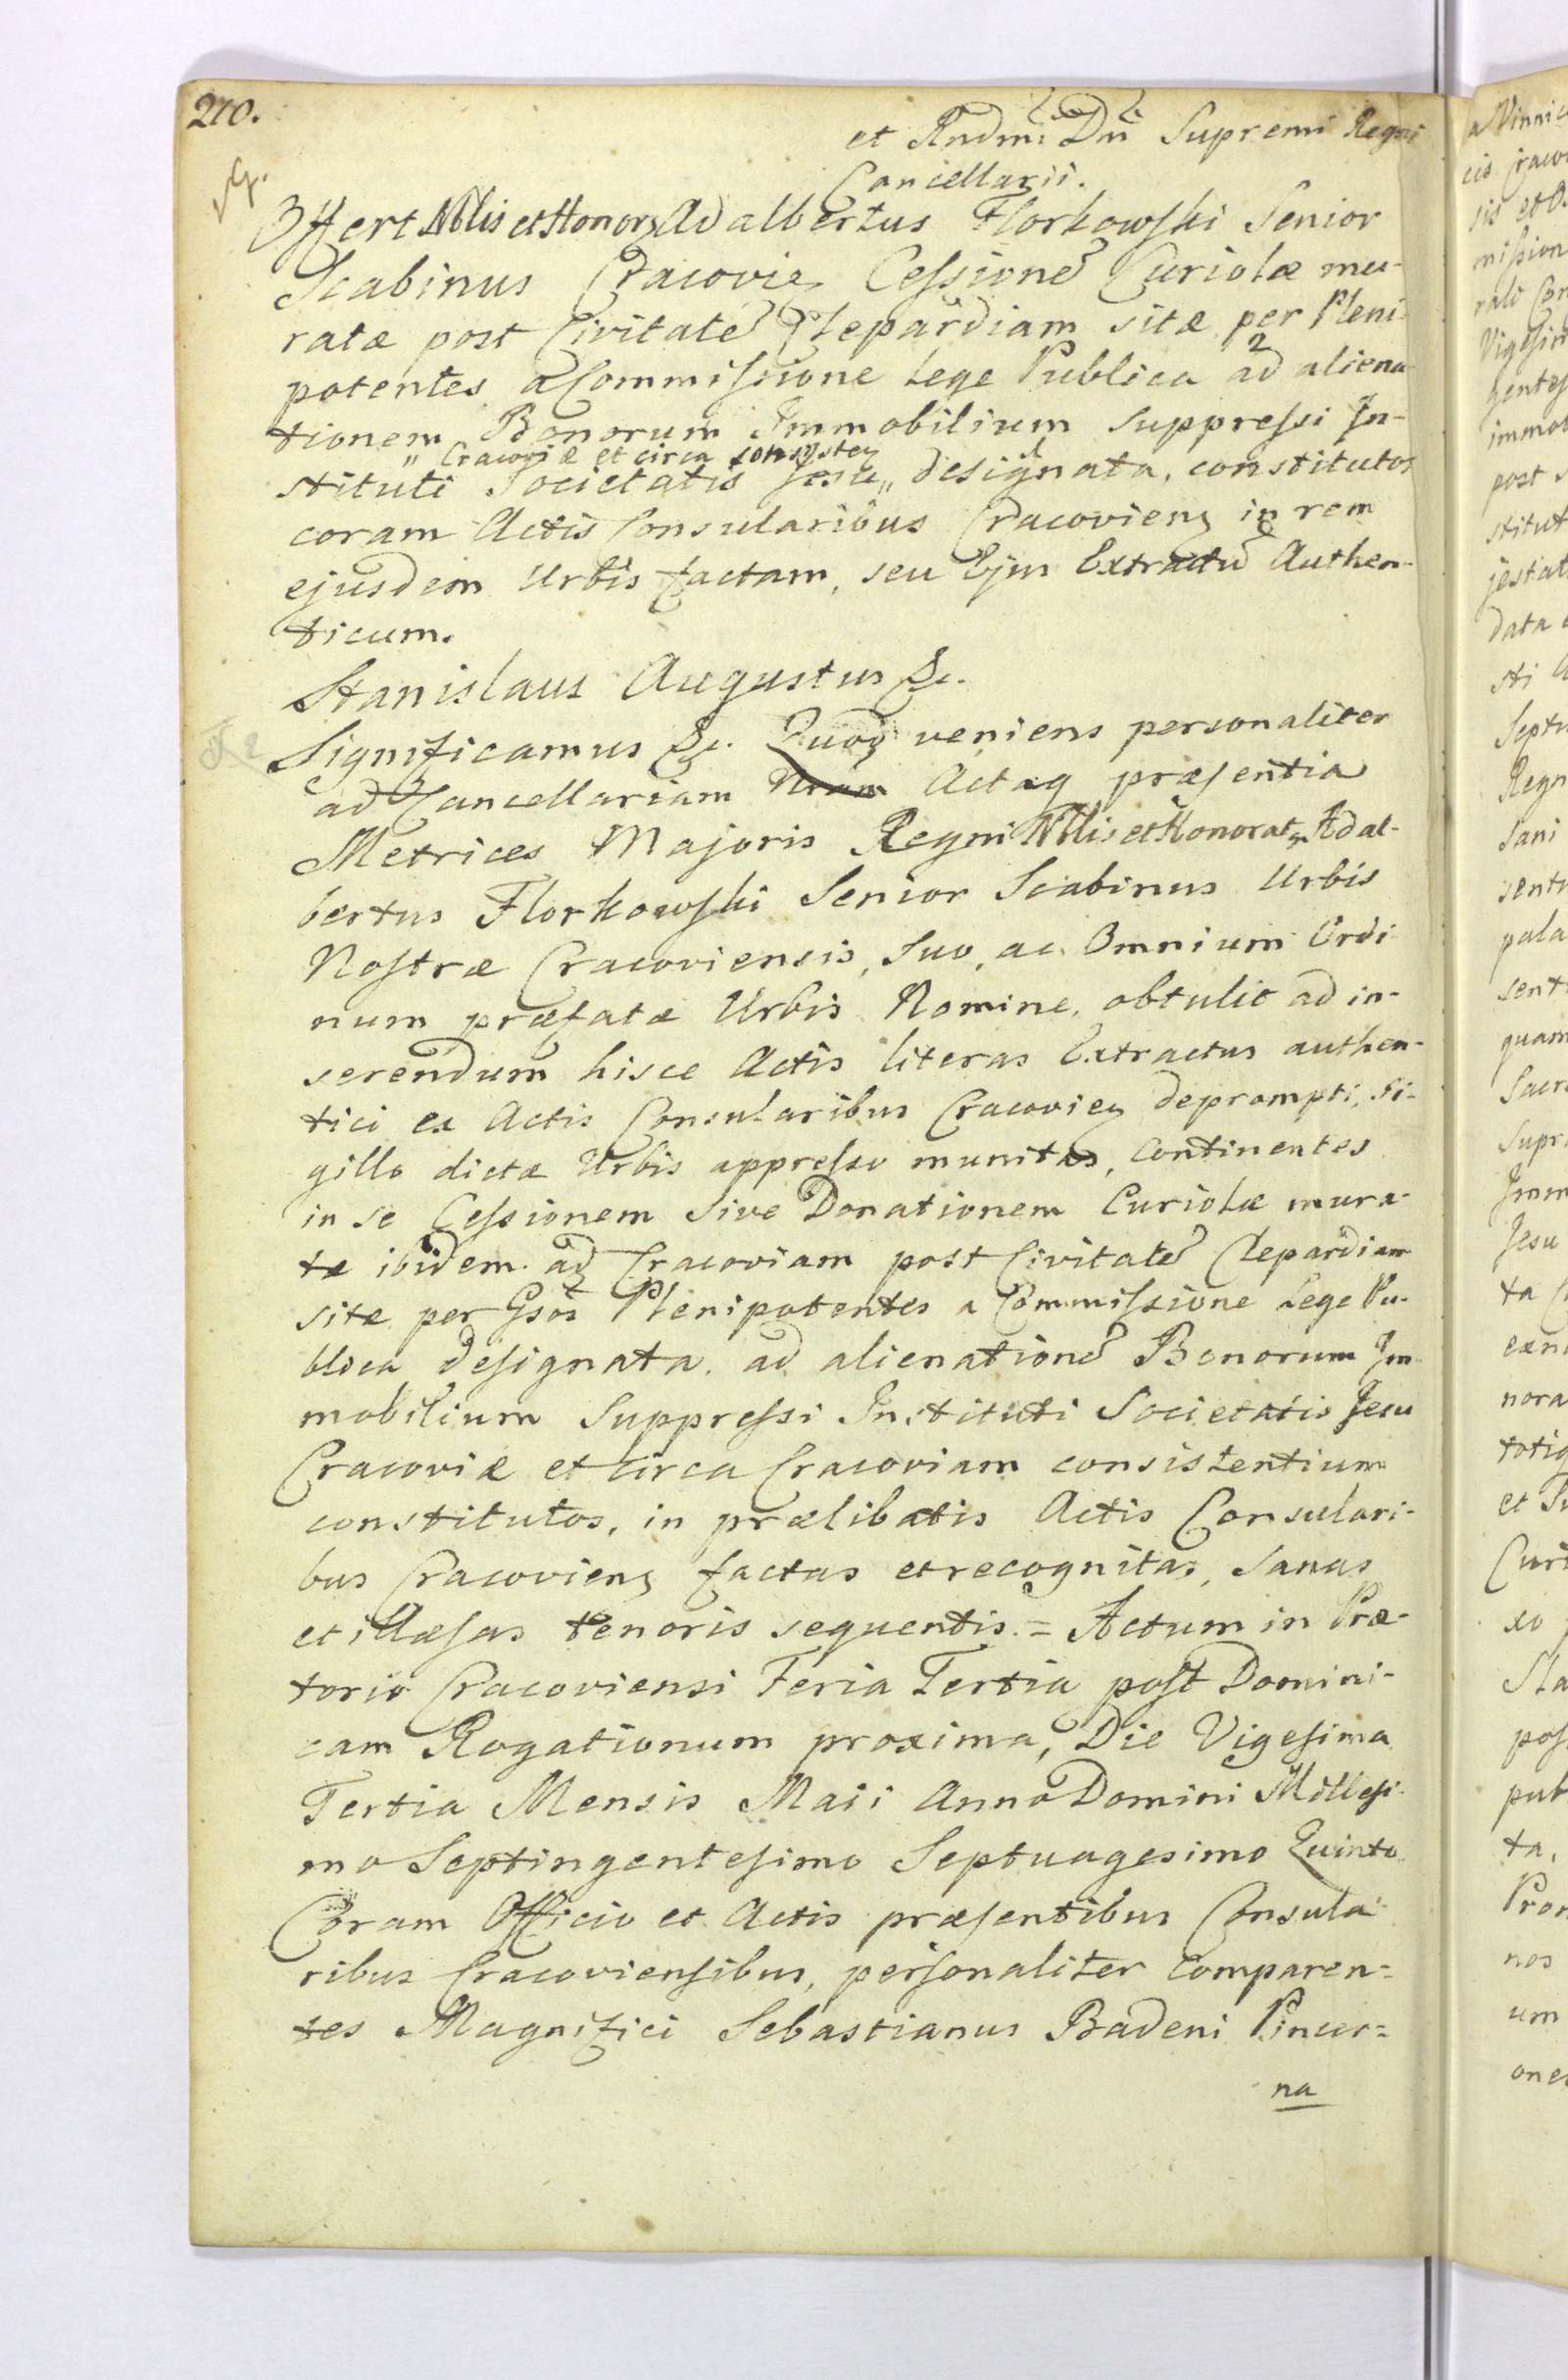 210.
et Rndmi Dni Supremi Regni
Cancellarii.
Offert Nblis et Honor Adalbertus Florkowski Senior
Scabinus Cracovie Cessione Curiolæ mu-
ratæ post Civitate Clepardiam sitæ per Pleni-
potentes a Commissione Lege Publica ad aliena-
tionem Bonorum Immobilium suppressi In-
„ Cracoviæ et circa consysten
stituti Societatis Jesu „ designata, constitutos
coram Actis Consularibus Cracovien in rem
ejusdem Urbis factam, seu Ejus Extractu Authen-
ticum.
Stanislaus Augustus &c.
Significamus &c. Quod veniens personaliter
ad Cancellariam Actaq præsentia
Metrices Majoris Regni Nblis et Honorat Adal-
bertus Florkowski Senior Scabinus Urbis
Nostræ Cracoviensis, suo, ac Omnium Ordi-
num præfatæ Urbis Nomine, obtulit ad in-
serendum hisce Actis literas Extractus authen-
tici ex Actis Consularibus Cracovien deprompti, si-
gillo dictæ Urbis appresso munitas, continentes
in se Cessionem sive Donationem Curiolæ mura-
tæ ibidem ad Cracoviam post Civitate Clepardiam
sitæ per Gsos Plenipotentes a Commissione Lege Pu-
blica designata ad alienatione Bonorum Im-
mobilium Suppressi Instituti Societatis Jesu
Cracoviæ et circa Cracoviam consistentium
constitutos, in prælibatis Actis Consulari-
bus Cracovien factas et recognitas, sanas
et illæsas tenoris sequentis. = Actum in Præ-
torio Cracoviensi Feria Tertia post Domini-
cam Rogationum proxima, Die Vigesima
Tertia Mensis Maii Anno Domini Millesi-
mo Septingentesimo Septuagesimo Quinto
Coram Officio et Actis præsentibus Consula-
ribus Cracoviensibus, personaliter Comparen=
tes Magnifici Sebastianus Badeni Pincer=
na